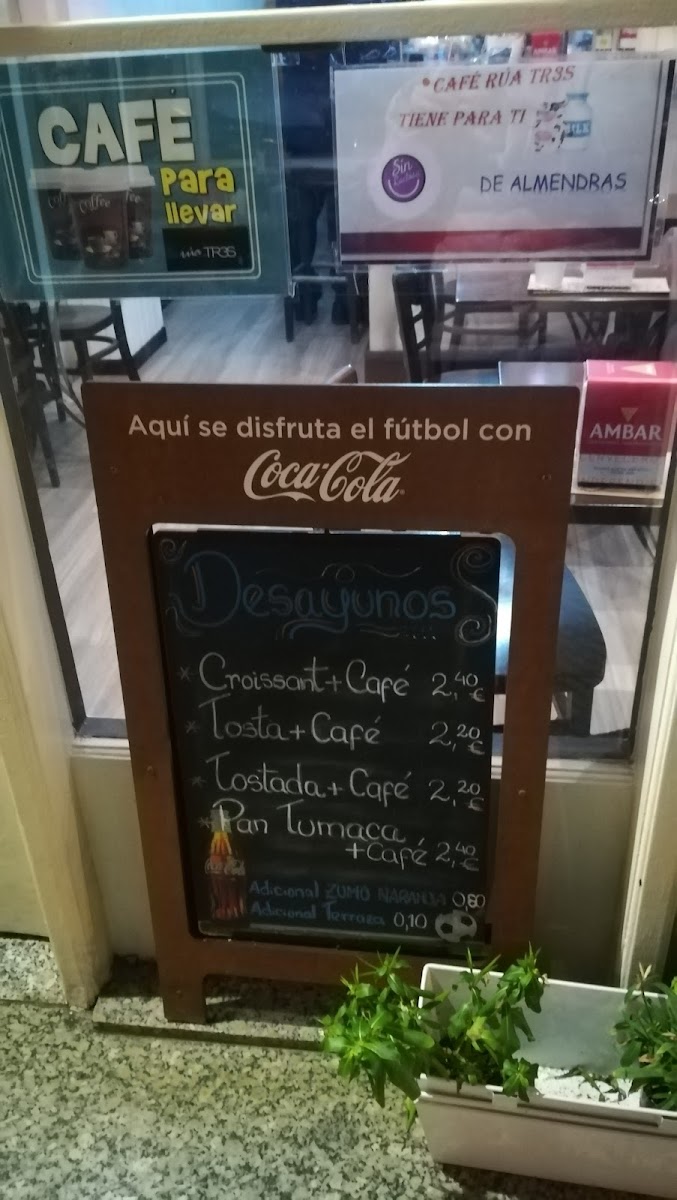 CAFE
Para
llevar
rúa TR3S
Coffee
CAFÉ RÚA TR3S
TIENE PARA TI
MILK
Sin
Lactosa
DE ALMENDRAS
AMBAR
Aquí se disfruta el fútbol con
Coca-Cola
Desayunos
* Croissant + Café 2,40 €
* Tosta + Café 2,20 €
* Tostada + Café 2,20 €
* Pan Tumaca
+ Café 2,40 €
Coca-Cola
Adicional ZUMO NARANJA 0,80
Adicional Terraza 0,10